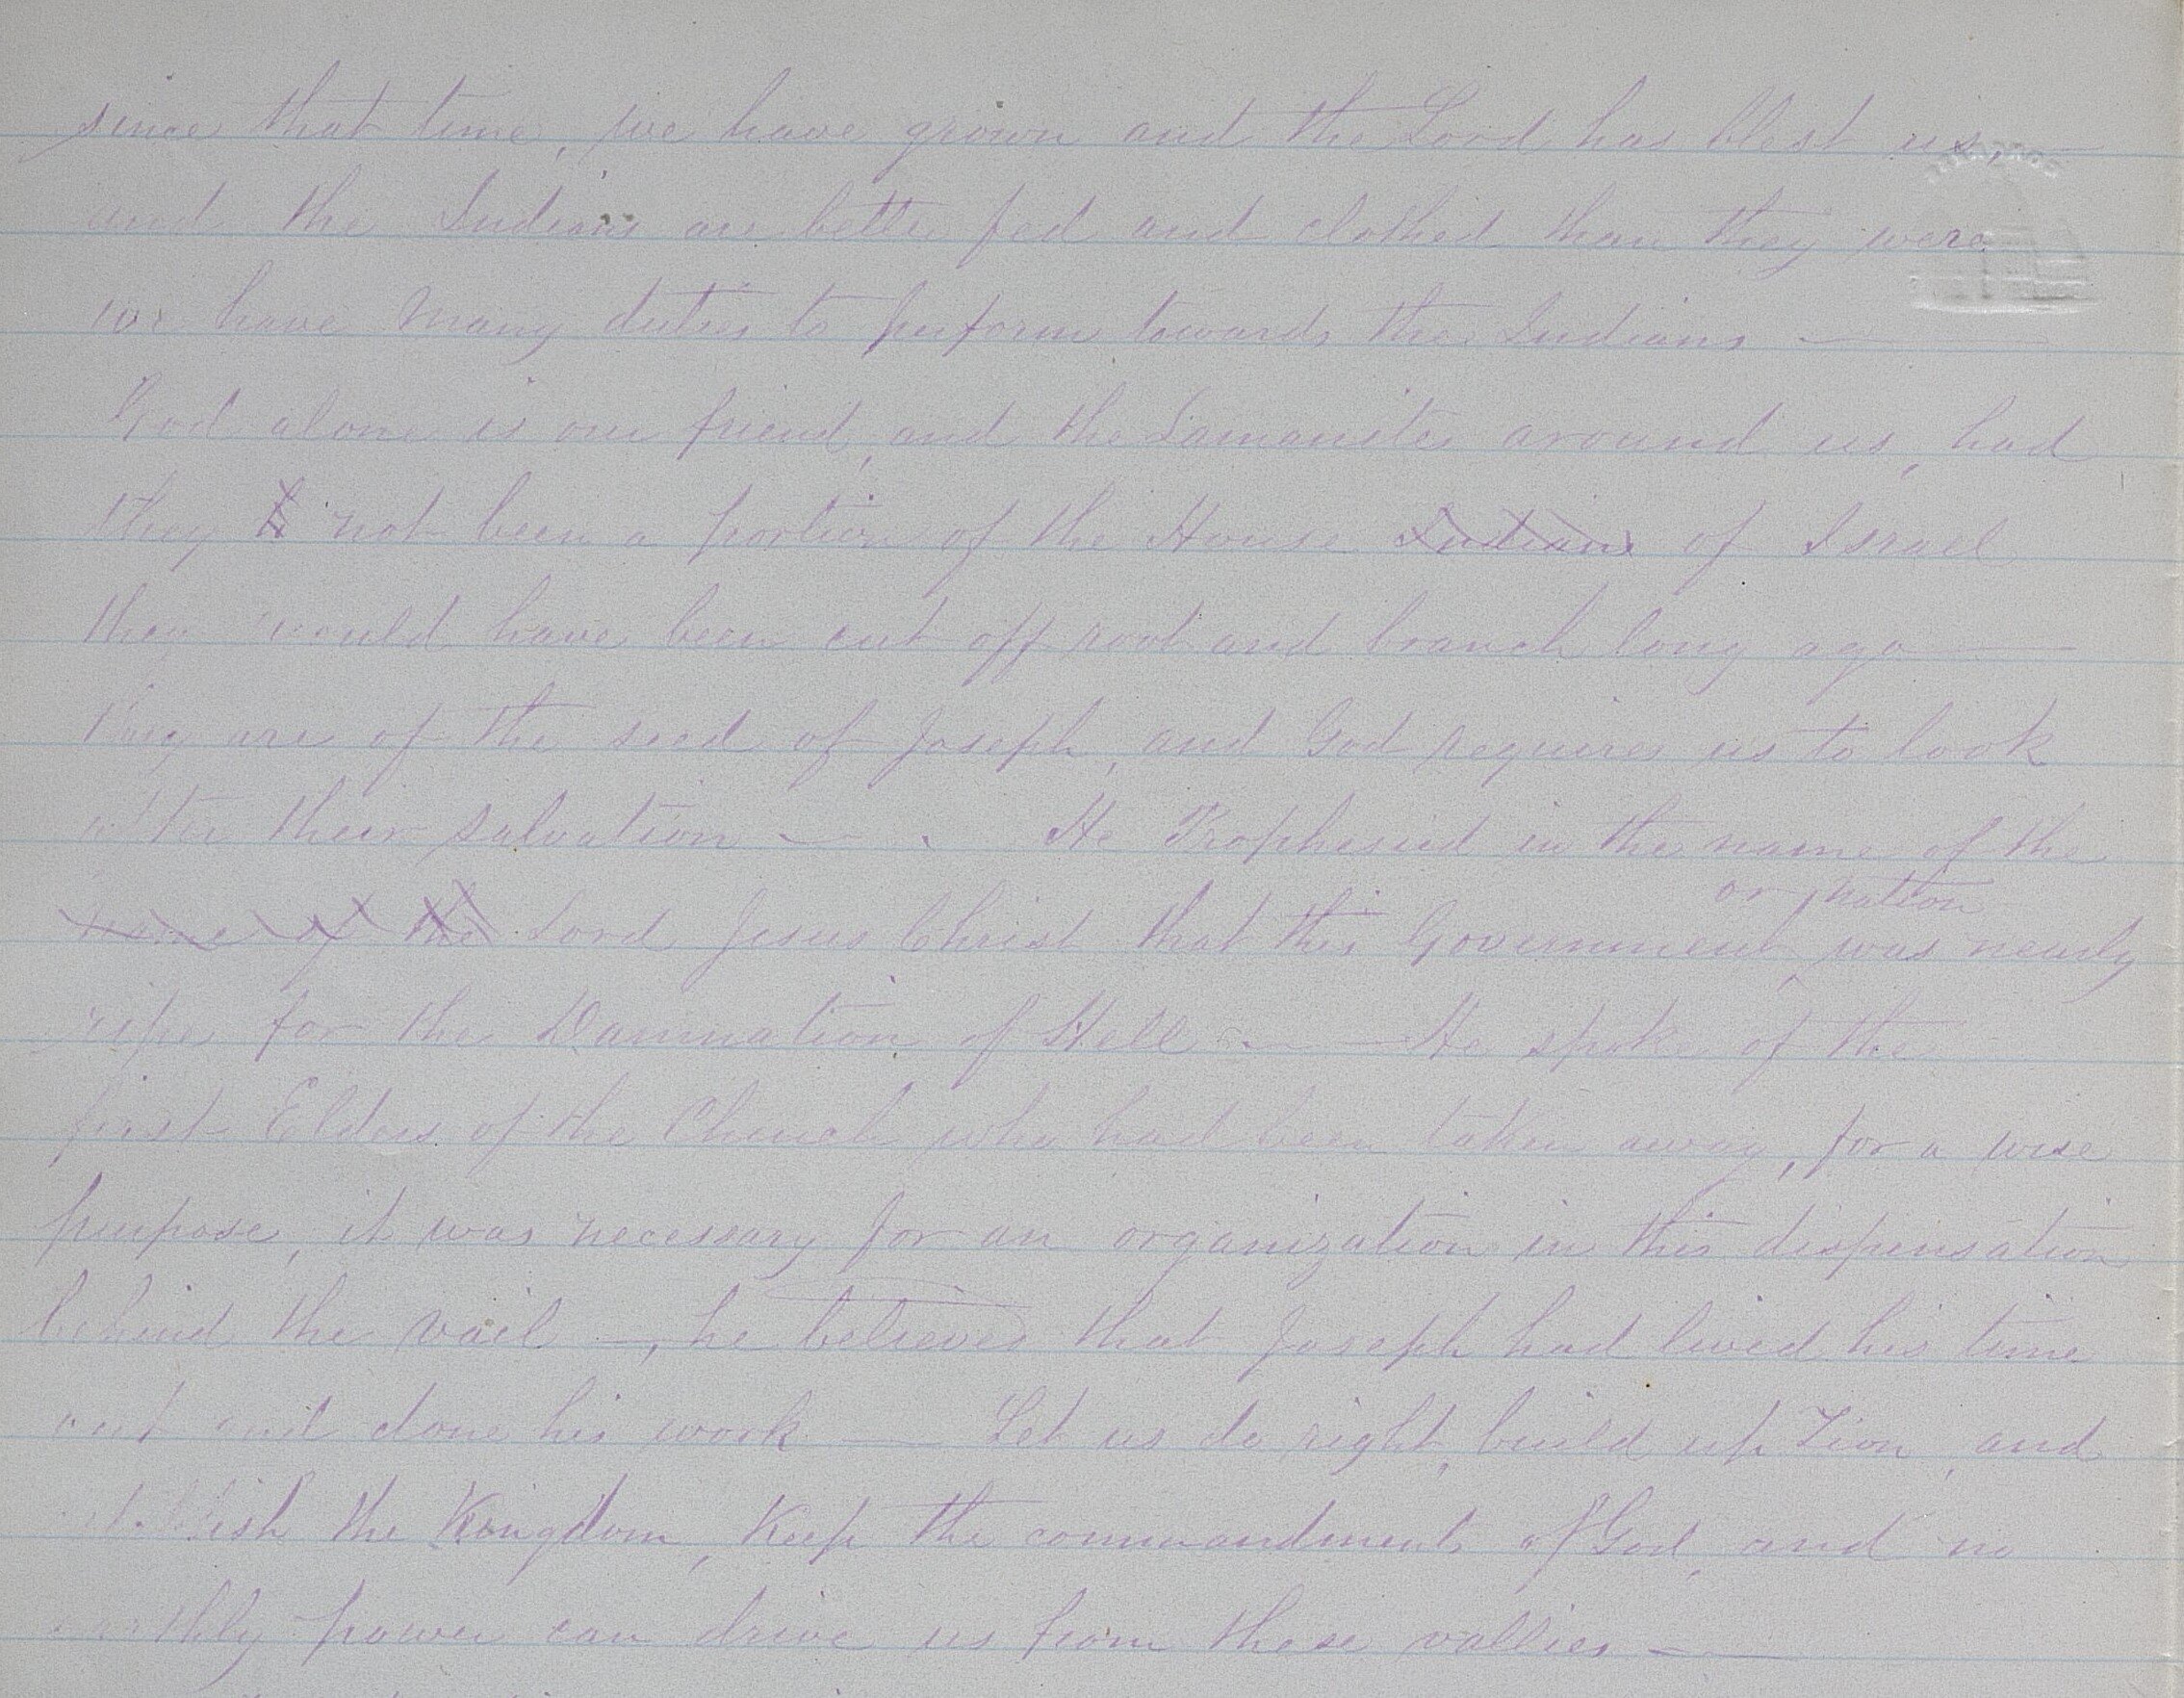 since that time, we have grown and the Lord has blest us, —
and the Indians are better fed and clothed than they were
we have many duties to perform towards the Indians —
God alone is our friend, and the Lamanites around us, had
they not been a portion of the House Indians of Israel
they would have been cut off root and branch long ago —
they are of the seed of Joseph, and God requires us to look
after their salvation — . He Prophesied in the name of the
or nation
name of the Lord Jesus Christ that this Government was nearly
ripe for the Damnation of Hell — He spoke of the
first Elders of the Church who had been taken away, for a wise
purpose, it was necessary for an organization in this dispensation
behind the vail —, he believed that Joseph had lived his time
out and done his work — Let us do right, build up Zion, and
establish the Kingdom, Keep the commandments of God, and no
earthly power can drive us from these vallies —